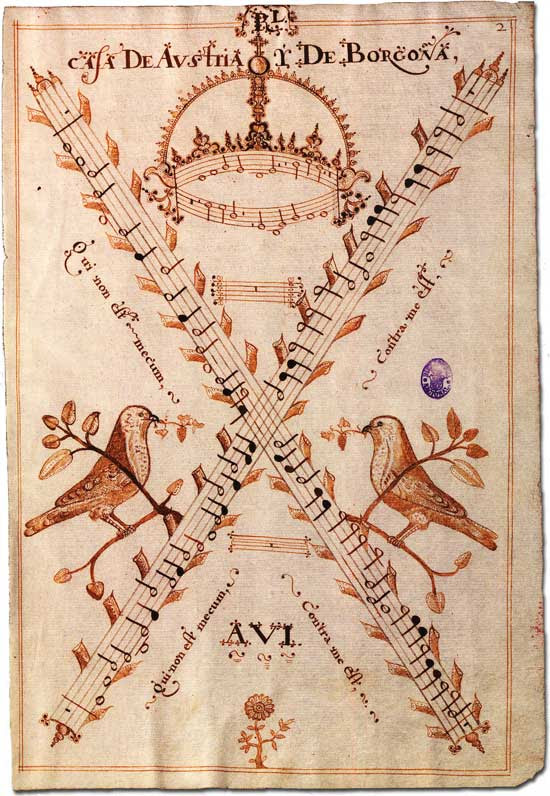 PL
2
Casa De Austria Y De Borgoña,
Qui non est mecum,
Contra me est.
Qui non est mecum,
Contra me est,
AVI